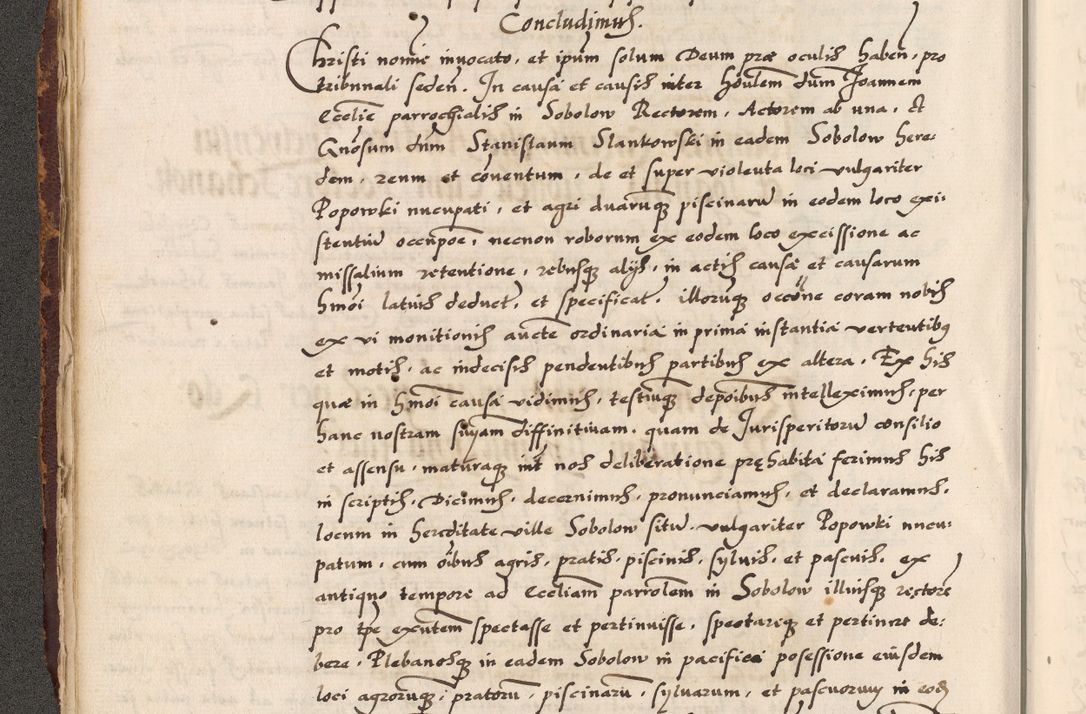 Concludimus.
Christi nomine invocato, et ipum solum Deum præ oculis haben, pro
tribunnali seden. In causa et causis inter honlem dum Joannem
Ecclie parrochialis in Sobolow Rectorem, Actorem ab una, Et
Gnosum dnm Stanislaum Slankowski in eadem Sobolow here-
dem, reum et coventum, de et super violenta loci vulgariter
Popowki nucupati, et agri duarumq piscinarum in eodem loco exi-
stentium occupoe, necnon roborum ex eodem loco excissione ac
missalium retentione, rebusq alijs, in actis causæ et causarum
hmoi latius deduct, et specificat, illorumq occone coram nobis
ex vi monitionis aucte ordinaria in prima instantia vertentibus
et motis, ac indecisis pendentibus partibus ex altera, Ex his
quæ in hmoi causa vidimus, testiumq depoibus intelleximus, per
hanc nostram snyam diffinitivam, quam de Jurisperitorum consilio
et assensu, maturaq int nos deliberatione pręhabita ferimus his
in scriptis, Dicimus, decernimus, pronunciamus, et declaramus,
locum in hereditate ville Sobolow situm, vulgariter Popowki nucu-
patum, cum oibus agris, pratis, piscinis, sylvis, et pascuis, ex
antiquo tempore ad Eccliam parrolem in Sobolow illiusq rectore
pro tpe exntem spectasse et pertinuisse, spectareq et pertinere de-
bere, Plebanosq in eadem Sobolow in pacifica posessione eiusdem
loci agrorumq, pratorum, piscinarum, sylvarum, et pascuorum in eod